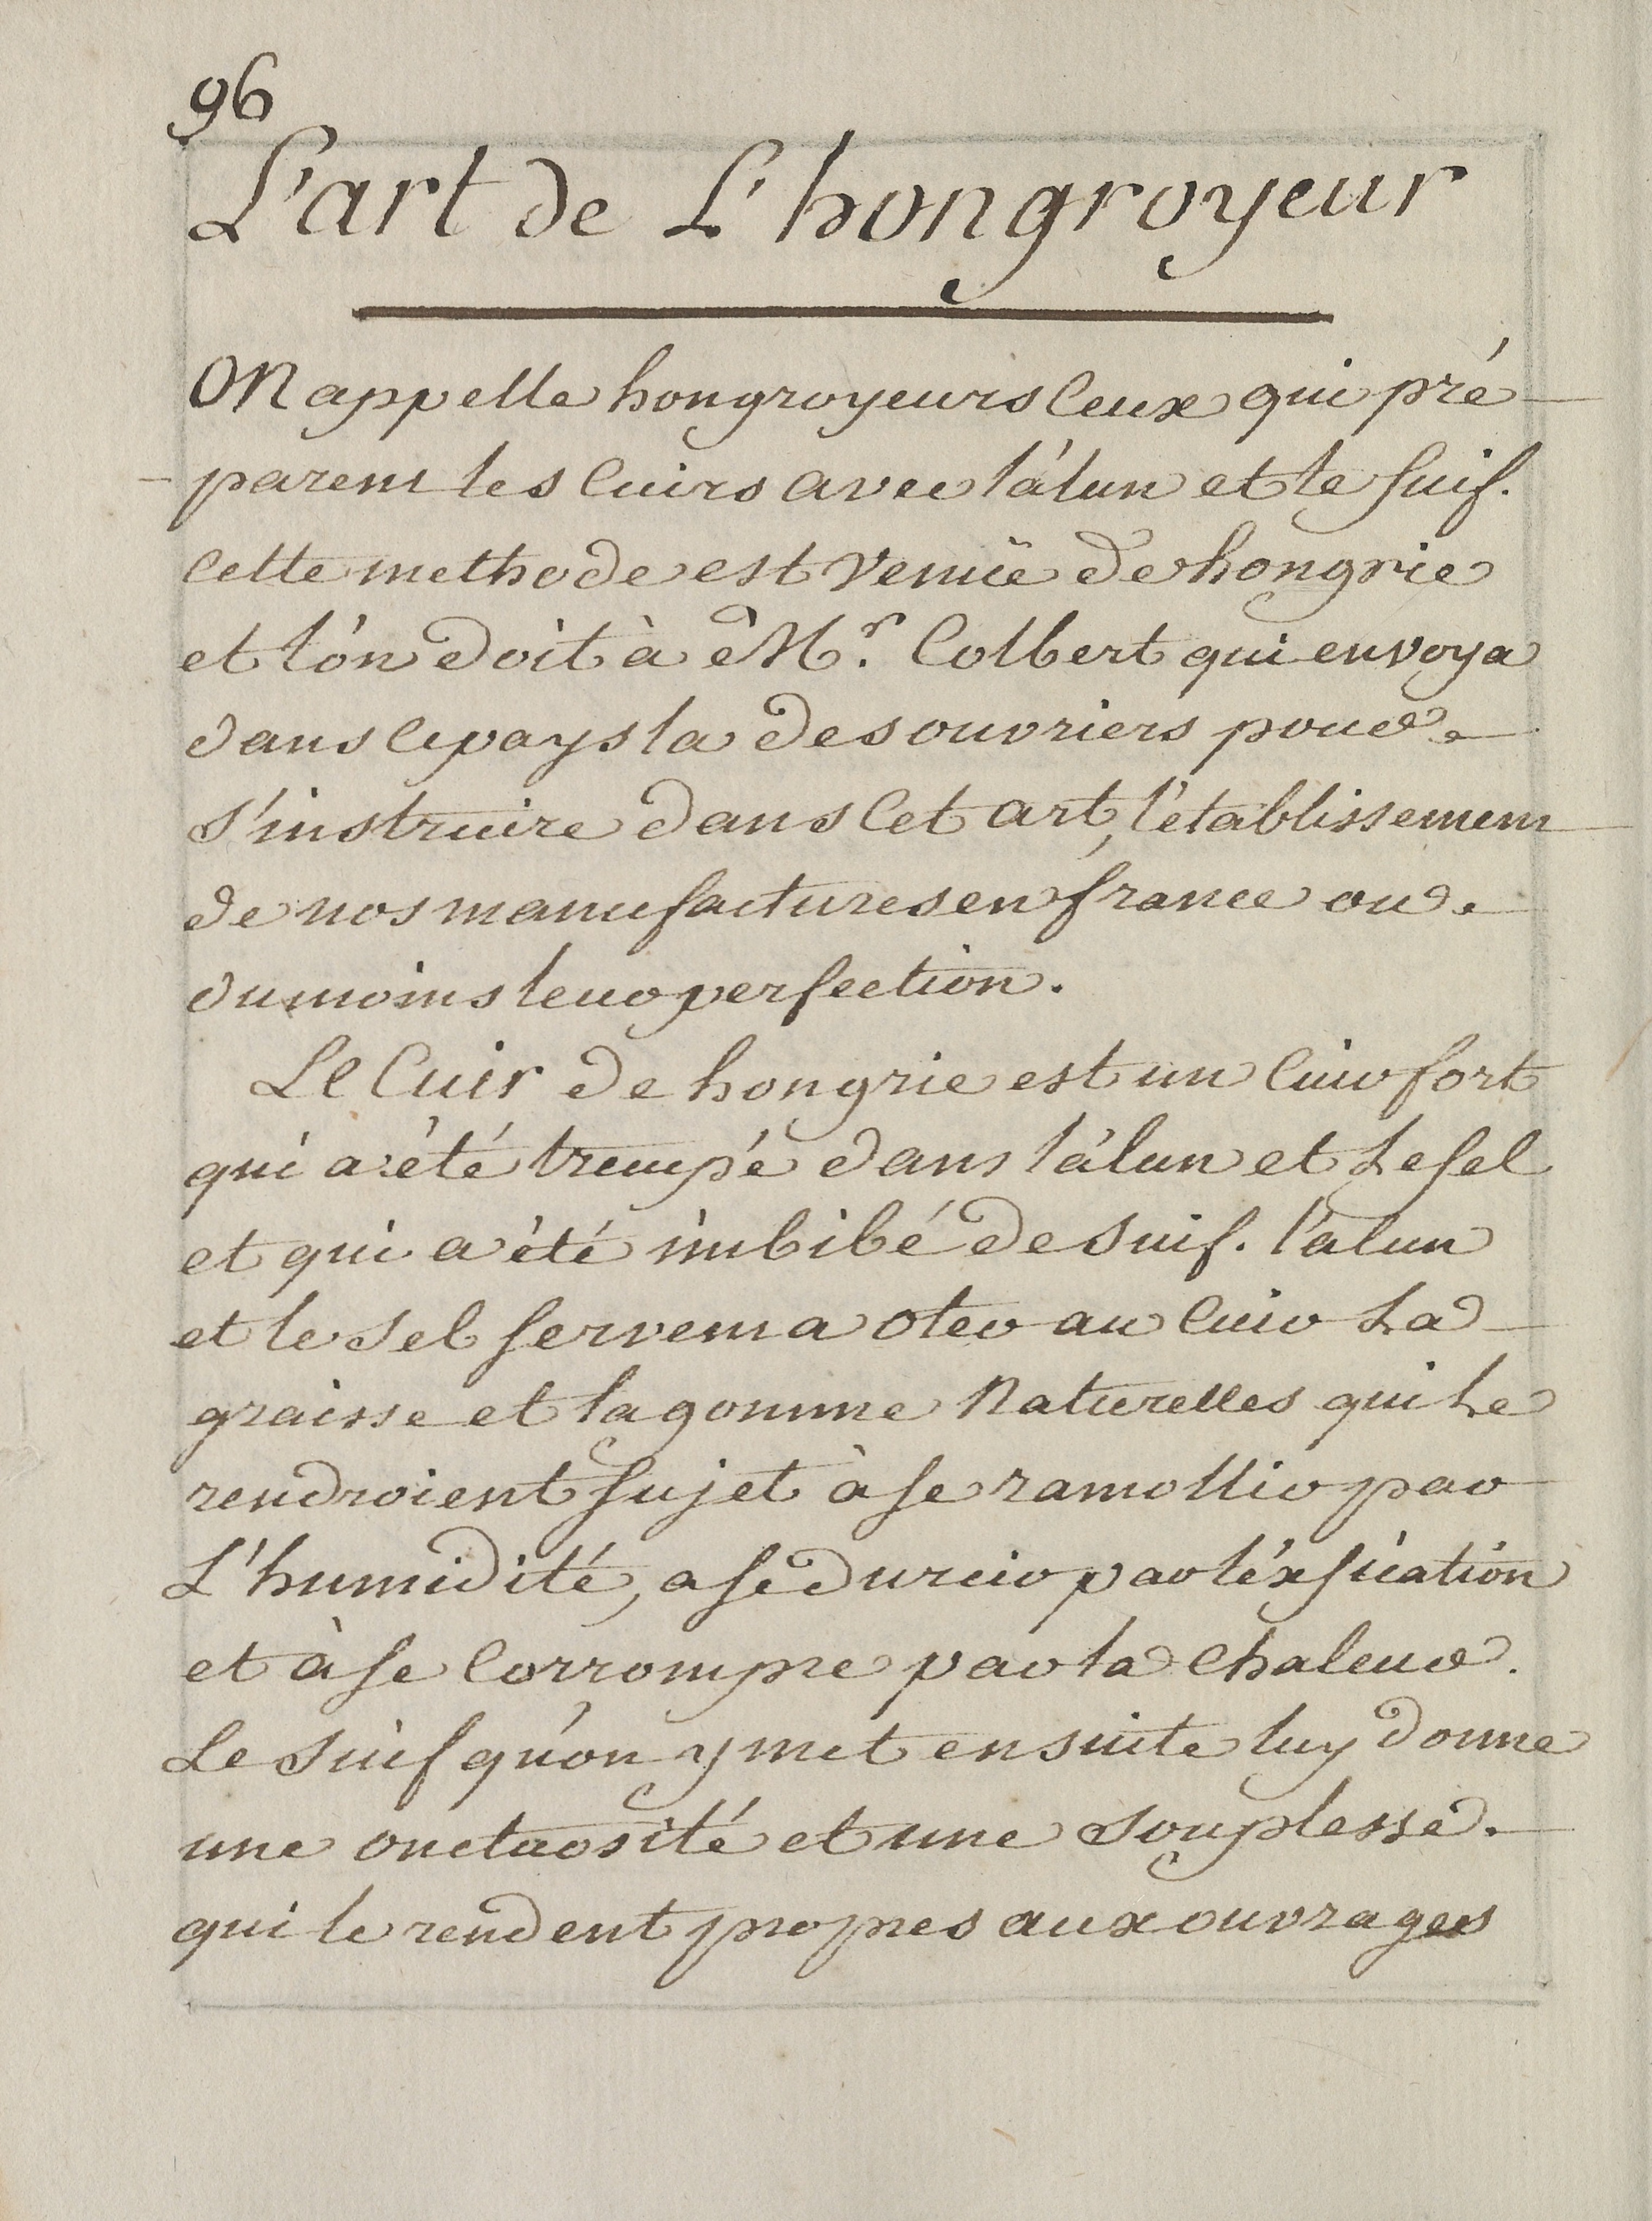 96
L'art de L'hongroyeur
On appelle hongroyeurs ceux qui pré
parent les cuirs avec l'alun et le suif.
cette methode est venüe de hongrie
et l'on doit à Mr. Colbert qui envoya
dans ce pays la des ouvriers pour
s'instruire dans cet art, l'établissement
de nos manufactures en france ou
du moins leur perfection.
Le Cuir de hongrie est un cuir fort
qui a été trempé dans l'alun et Le sel
et qui a été imbibé de suif. l'alun
et le sel servent a oter au cuir La
graisse et la gomme Naturelles qui Le
rendroient sujet à se ramollir par
L'humidité, a se durcir par l'éxsication
et à se corrompre par la chaleur.
Le suif qu'on y met ensuite luy donne
une onctuosité et une souplesse
qui le rendent propres aux ouvrages